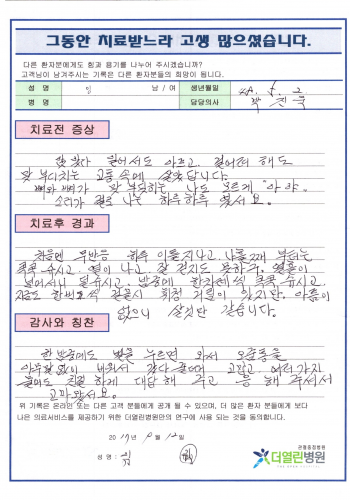 그동안 치료받느라 고생 많으셨습니다.
다른 환자분에게도 힘과 용기를 나누어 주시겠습니까?
고객님이 남겨주시는 기록은 다른 환자분들의 희망이 됩니다.
성 명 남 / 여 생년월일
병 명 담당의사
치료전 증상
앉았다 일어서도 아프고. 걸어려 해도
맞 부디치는 고통 속에 살았답니다.
뼈와 뼈가 맞 부딪히는 나도 모르게 "아야"
소리가 절로 나는 하루하루 였서요.
치료후 경과
처음엔 무반응 하루 이틀 지나고. 나흘 부터는
콕콕 쑤시고. 열이 나고. 잘 걷지도 못하구.
쑤시고. 밤중에 한차례씩 콕콕 쑤시고.
지금도 한번으씩 걸음시 휘청 거림이 있지만. 아픔이
없으니 살것만 같습니다.
감사와 칭찬
한 밤중에도 벨을 누르면 와서
고맙고. 여러가지
물어도 친절 하게 대답 해 주고 주셔서
고마왔서요.
위 기록은 온라인 또는 다른 고객 분들에게 공개 될 수 있으며, 더 많은 환자 분들에게 보다
나은 의료서비스를 제공하기 위한 더열린병원만의 연구에 사용 되는 것을 동의합니다.
20 년 월 일
성 명 :
관절중점병원
더열린병원